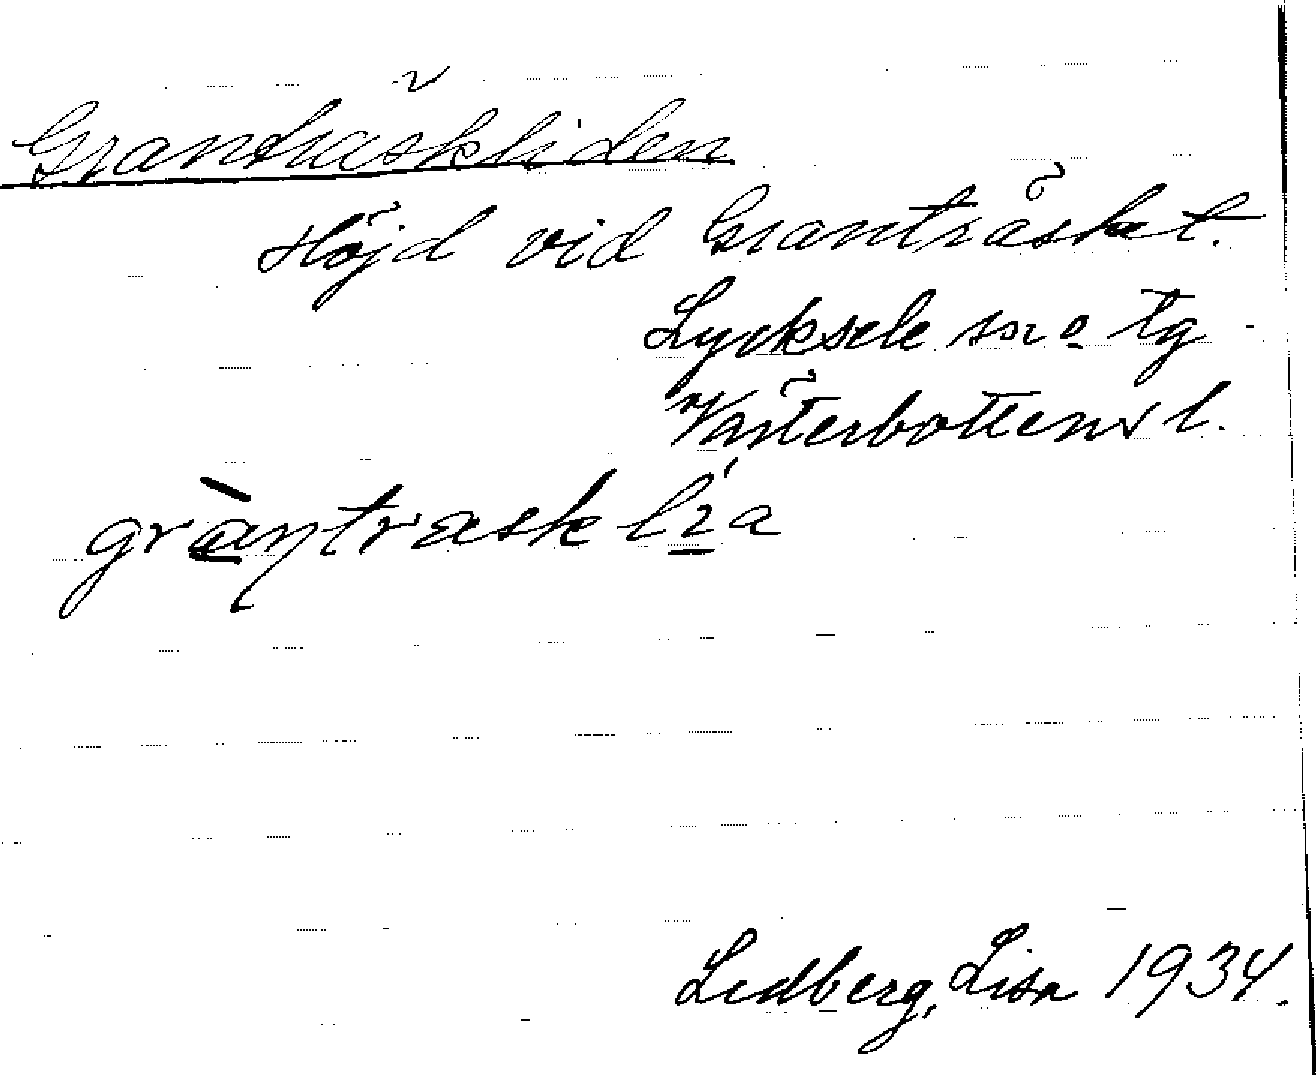 Granträskliden
Höjd vid Granträsket.
Lycksele sn o tg
Västerbottens l.
gràntræsk lí̱a
Ledberg, Lisa 1934.